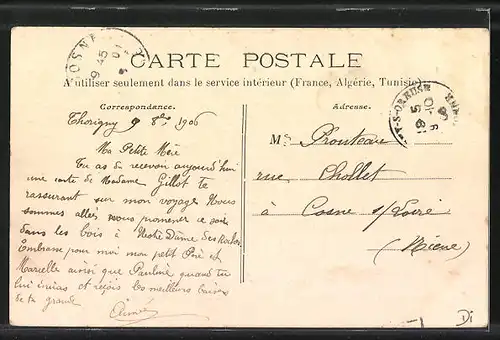 CARTE POSTALE
A utiliser seulement dans le service intérieur (France, Algérie, Tunisie)
Correspondance.
Thorigny 9 8bre 1906
Ma Petite Mère
Tu as du recevoir aujourd'hui
une carte de Madame Gillot te
rassurant sur mon voyage Nous
sommes allés nous promener ce soir
dans les bois à Notre Dame des Roches
Embrasse pour moi mon petit Père et
Marcelle ainsi que Pauline quand tu
lui et reçois les meilleurs baisers
de ta grande
Aimée
Adresse.
M Prouteau
rue Chollet
à Cosne s/Loire
(Nièvre)
COSNE
9 45
Y-S-OREUSE
Di